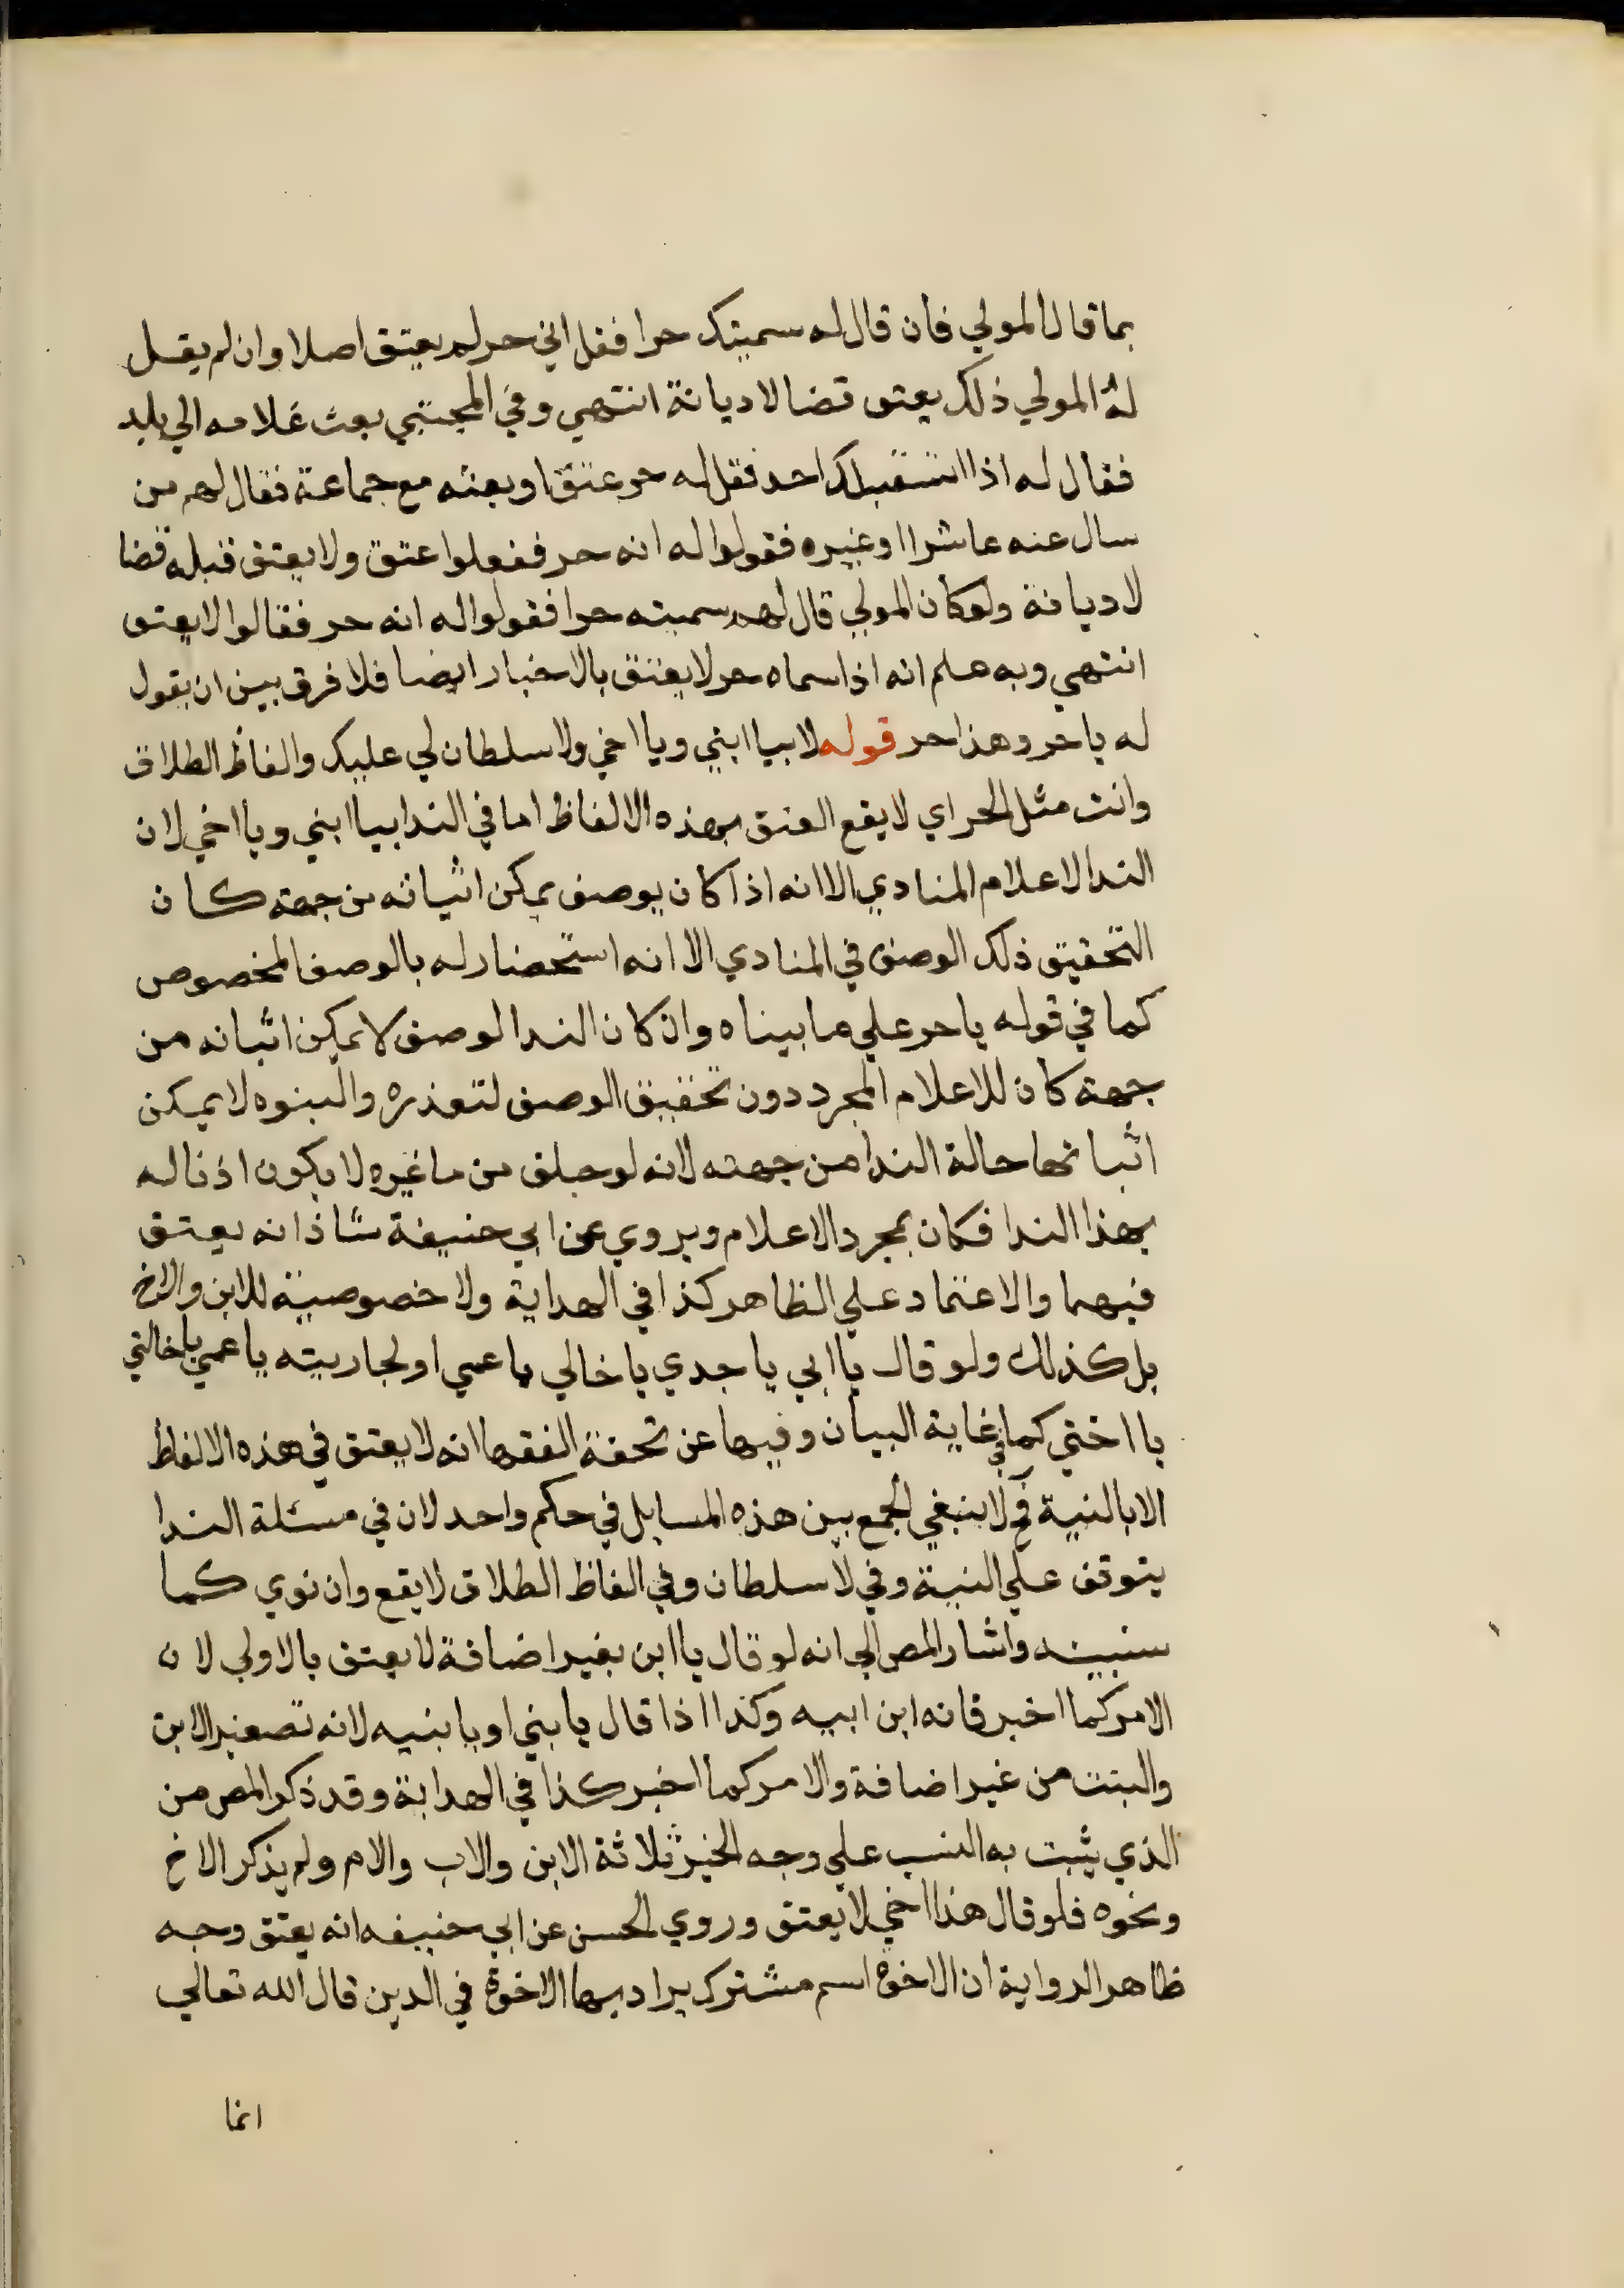 بما قال المولي فان قال له سميتك حرا فقل اني حر لم يعتق اصلا وان لم يقل
له المولي ذلك يعتق قضا لا ديانة انتهي وفي المجتبي بعث غلامه الي بلد
فقال له اذا استقبلك احد فقل له حر عتق او بعثه مع جماعة فقال لهم من
سال عنه عاشرا او غيره فقولوا له انه حر ففعلوا عتق ولا يعتق قبله قضا
لا ديانة ولو كان المولي قال لهم سميته حرا فقولوا له انه حر فقالوا لا يعتق
انتهي وبه علم انه اذا سماه حر لا يعتق بالاخبار ايضا فلا فرق بين ان يقول
له يا حر وهذا حر قوله لا بيا ابني ويا اخي ولا سلطان لي عليك والفاظ الطلاق
وانت مثل الحر اي لا يقع العتق بهذه الالفاظ اما في الندا بيا ابني ويا اخي لان
الندا لاعلام المنادي الا انه اذا كان بوصف يمكن اثباته من جهته كان
التحقيق ذلك الوصف في المنادي الا انه استحضار له بالوصف المخصوص
كما في قوله يا حر علي ما بيناه وان كان الندا لوصف لا يمكن اثباته من
جهته كان للاعلام المجرد دون تحقيق الوصف لتعذره والبنوه لا يمكن
اثباتها حالة الندا من جهته لانه لو خلق من ما غيره لا يكون اذنا له
بهذا الندا فكان بمجرد الاعلام ويروي عن ابي حنيفة شاذا انه يعتق
فيهما والاعتماد علي الظاهر كذا في الهداية ولا خصوصية للابن والاخ
بل كذلك ولو قال يا ابي يا جدي يا خالي يا عمي او لجاريته يا عمتي يا خالتي
يا اختي كما في غاية البيان وفيها عن تحفة الفقها انه لا يعتق في هذه الالفاظ
الا بالنية فح لا ينبغي الجمع بين هذه المسايل في حكم واحد لان في مسئلة الندا
يتوقف علي النية وفي لا سلطان وفي الفاظ الطلاق لا يقع وان نوي كما
سنبينه واشار المص الي انه لو قال يا ابن بغير اضافة لا يعتق بالاولي لان
الامر كما اخبر فانه ابن ابيه وكذا اذا قال يا بني او يا بنيه لانه تصغير الابن
والبنت من غير اضافة والامر كما اخبر كذا في الهداية وقد ذكر المص من
الذي يثبت به النسب علي وجه الخبر ثلاثة الابن والاب والام ولم يذكر الاخ
ونحوه فلو قال هذا اخي لا يعتق وروي الحسن عن ابي حنيفه انه يعتق وجه
ظاهر الرواية ان الاخوة اسم مشترك يراد بها الاخوة في الدين قال الله تعالي
انما